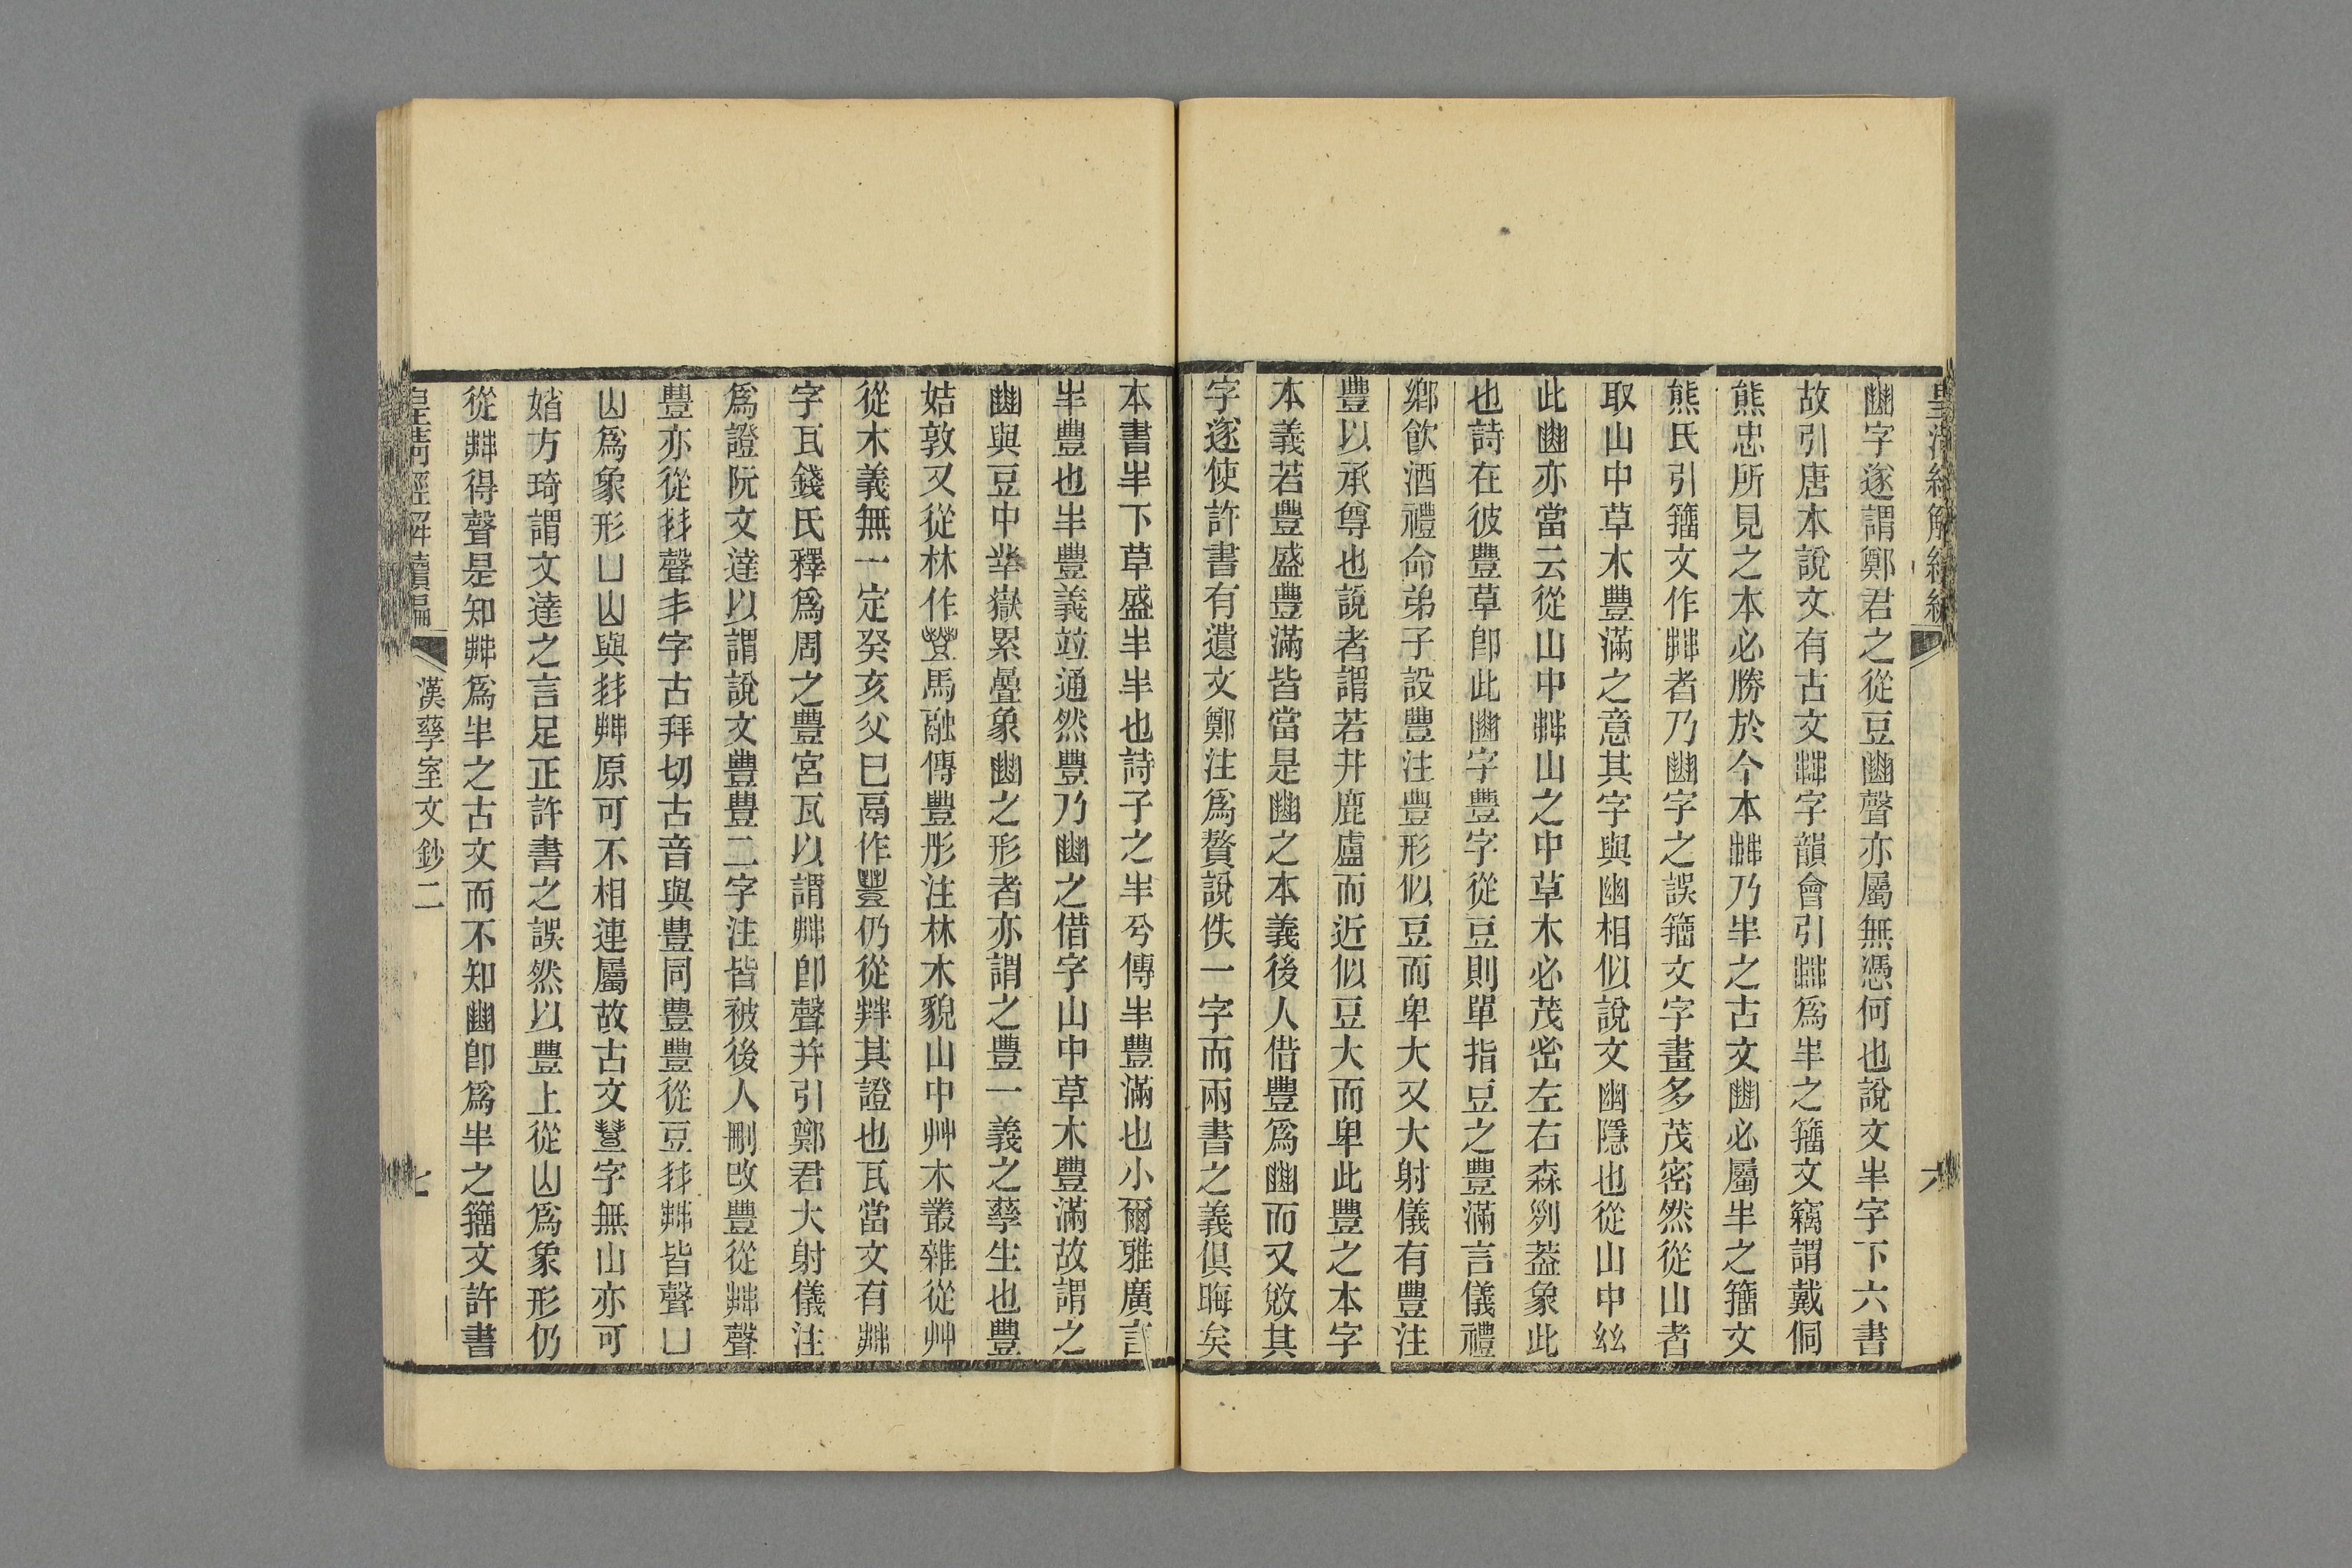 𧯮字遂謂鄭君之從豆𧯮聲亦屬無憑何也說文丰字下六書
故引唐本說文有古文𡴀字韻會引𡴀爲丰之籀文竊謂戴侗
熊忠所見之本必勝於今本𠦒乃丰之古文𧯮必屬丰之籀文
熊氏引籀文作者乃字之誤籀文字畫多茂密然從山者
取山中草木豐滿之意其字與幽相似說文幽隱也從山中𢆶
此亦當云從山山中山之中草木必茂密左右森列葢象此
也詩在彼豐草卽此字豐字從豆則單指豆之豐滿言儀禮
鄉飮酒禮命弟子設豐注豐形似豆而卑大又大射儀有豐注
豐以承尊也說者謂若井鹿盧而近似豆大而卑此豐之本字
本義若豐盛豐滿皆當是之本義後人借豐爲而又敚其
字遂使許書有遺文鄭注爲贅說佚一字而兩書之義俱晦矣
本書丰下草盛丰丰也詩子之丰兮傳丰豐滿也小爾雅廣言
丰豐也丰豐義竝通然豐乃之借字山中草木豐滿故謂之
與豆中丵嶽累疊象之形者亦謂之豐一義之孳生也豐
姞敦又從林作馬融傳豐彤注林木貌山中艸木叢雜從艸
從木義無一定癸亥父己鬲作豐仍從其證也瓦當文有
字瓦錢氏釋爲周之豐宮瓦以謂卽聲并引鄭君大射儀注
爲證阮文達以謂說文豐豊二字注皆被後人刪改豐從聲
豊亦從聲丯字古拜切古音與豊同豐豊從豆皆聲凵
山爲象形凵山與原可不相連屬故古文字無山亦可
媘方琦謂文達之言足正許書之誤然以豐上從山爲象形仍
從得聲是知爲丰之古文而不知卽爲丰之籀文許書
皇淸經解續編
漢孳室文鈔二
七